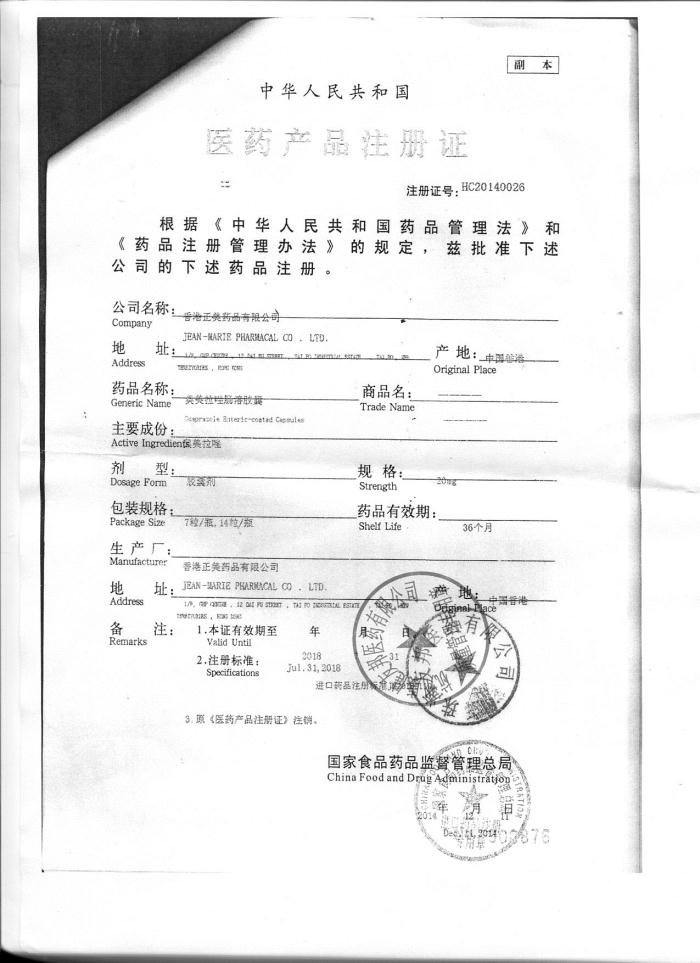 副 本
中华人民共和国
医药产品注册证
注册证号：HC20140026
根据《中华人民共和国药品管理法》和
《药品注册管理办法》的规定，兹批准下述
公司的下述药品注册。
公司名称：
Company
香港正美药品有限公司
JEAN-MARIE PHARMACAL CO . LTD.
地 址：
Address
产 地：中国香港
Original Place
TERRITORIES , HONG KONG
药品名称：
Generic Name
奥美拉唑肠溶胶囊
Enteric-coated Capsules
商品名：
Trade Name
主要成份：
Active Ingredients
奥美拉唑
剂 型：
Dosage Form
胶囊剂
规 格：
Strength
20mg
包装规格：
Package Size
7粒/瓶,14粒/瓶
药品有效期：
Shelf Life
36个月
生 产 厂：
Manufacturer
香港正美药品有限公司
JEAN-MARIE PHARMACAL CO . LTD.
地 址：
Address
产 地：中国香港
Original Place
备 注：
Remarks
1.本证有效期至 年 月 日
Valid Until
2018 31
Jul.31,2018
2.注册标准：
Specifications
进口药品注册标准
3.原《医药产品注册证》注销。
国家食品药品监督管理总局
China Food and Drug Administration
年 月 日
2014 12 11
Dec.11,2014